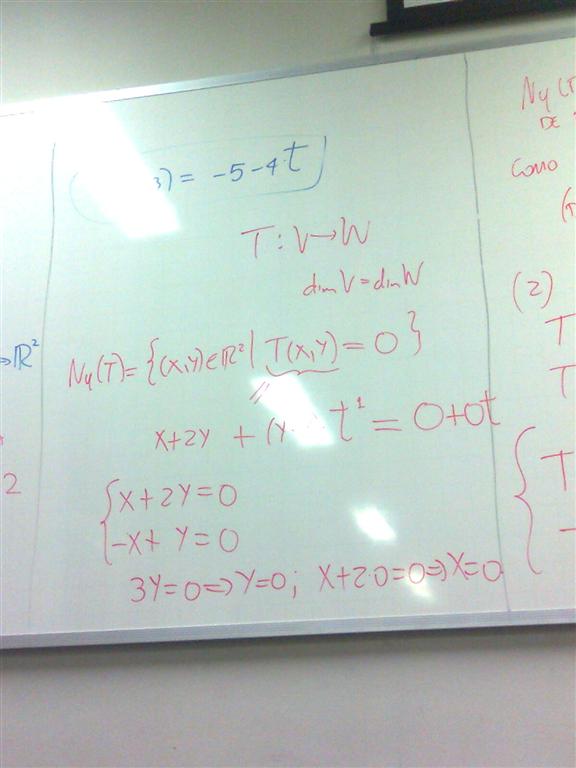 3) = -5-4t
T: V→W
dim V = dim W
Nu(T) = {(x,y)∈ℝ² | T(x,y) = 0}
x+2y + (y t¹ = 0+0t
{x+2y=0
-x+ y=0
3y=0⇒y=0; x+2·0=0⇒x=0
→ℝ²
2
Nu(T
DE
Como
(2)
T
T
{ T
-